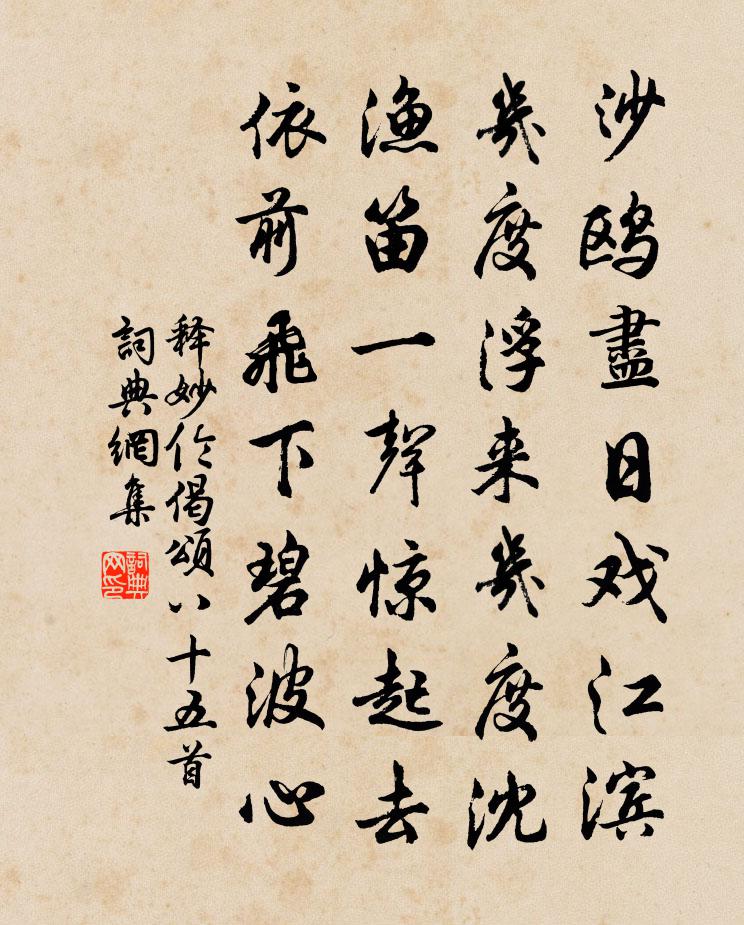 沙鸥盡日戏江滨
幾度浮来幾度沈
渔笛一聲惊起去
依前飛下碧波心
释妙伦偈頌八十五首
詞典網集
詞典网印